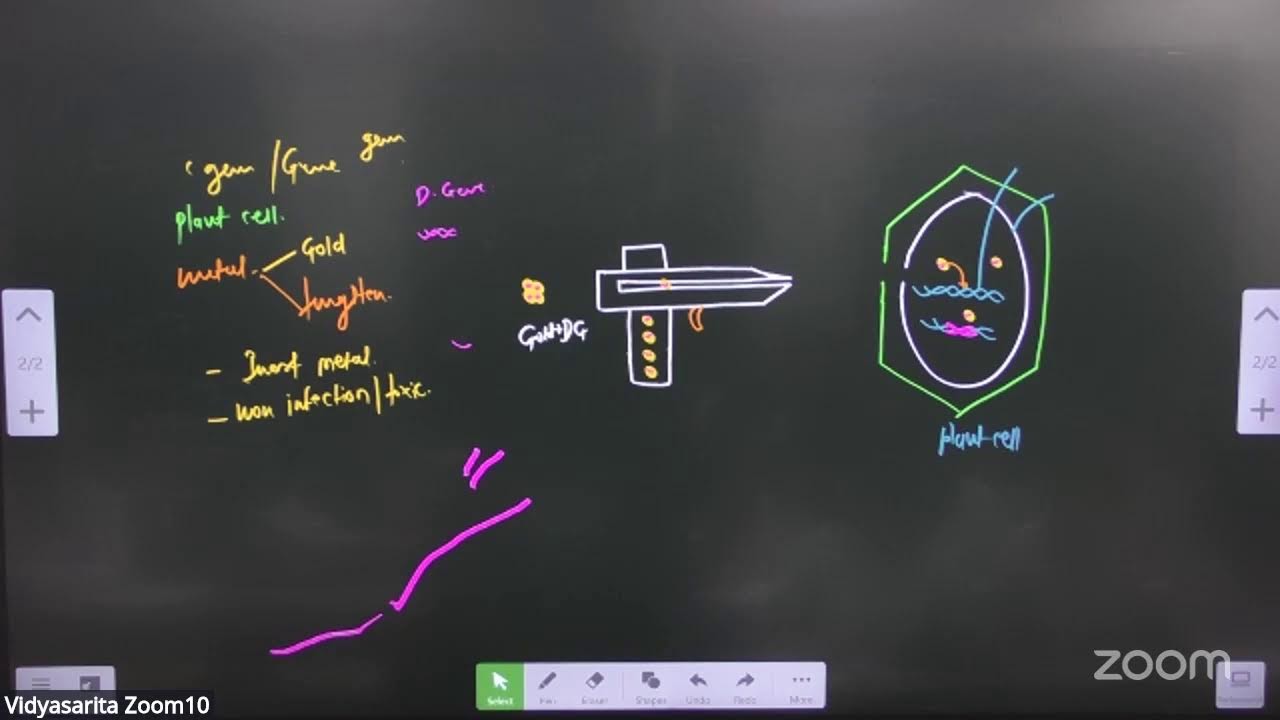 gun / Gene gun
plant cell.
D. Gene.
metal
Gold
tungsten.
- Inert metal.
- non infection / toxic.
Gold+DG
plant cell
2/2
2/2
Select
Pen
Eraser
Shapes
Undo
Redo
More
zoom
Vidyasarita Zoom10